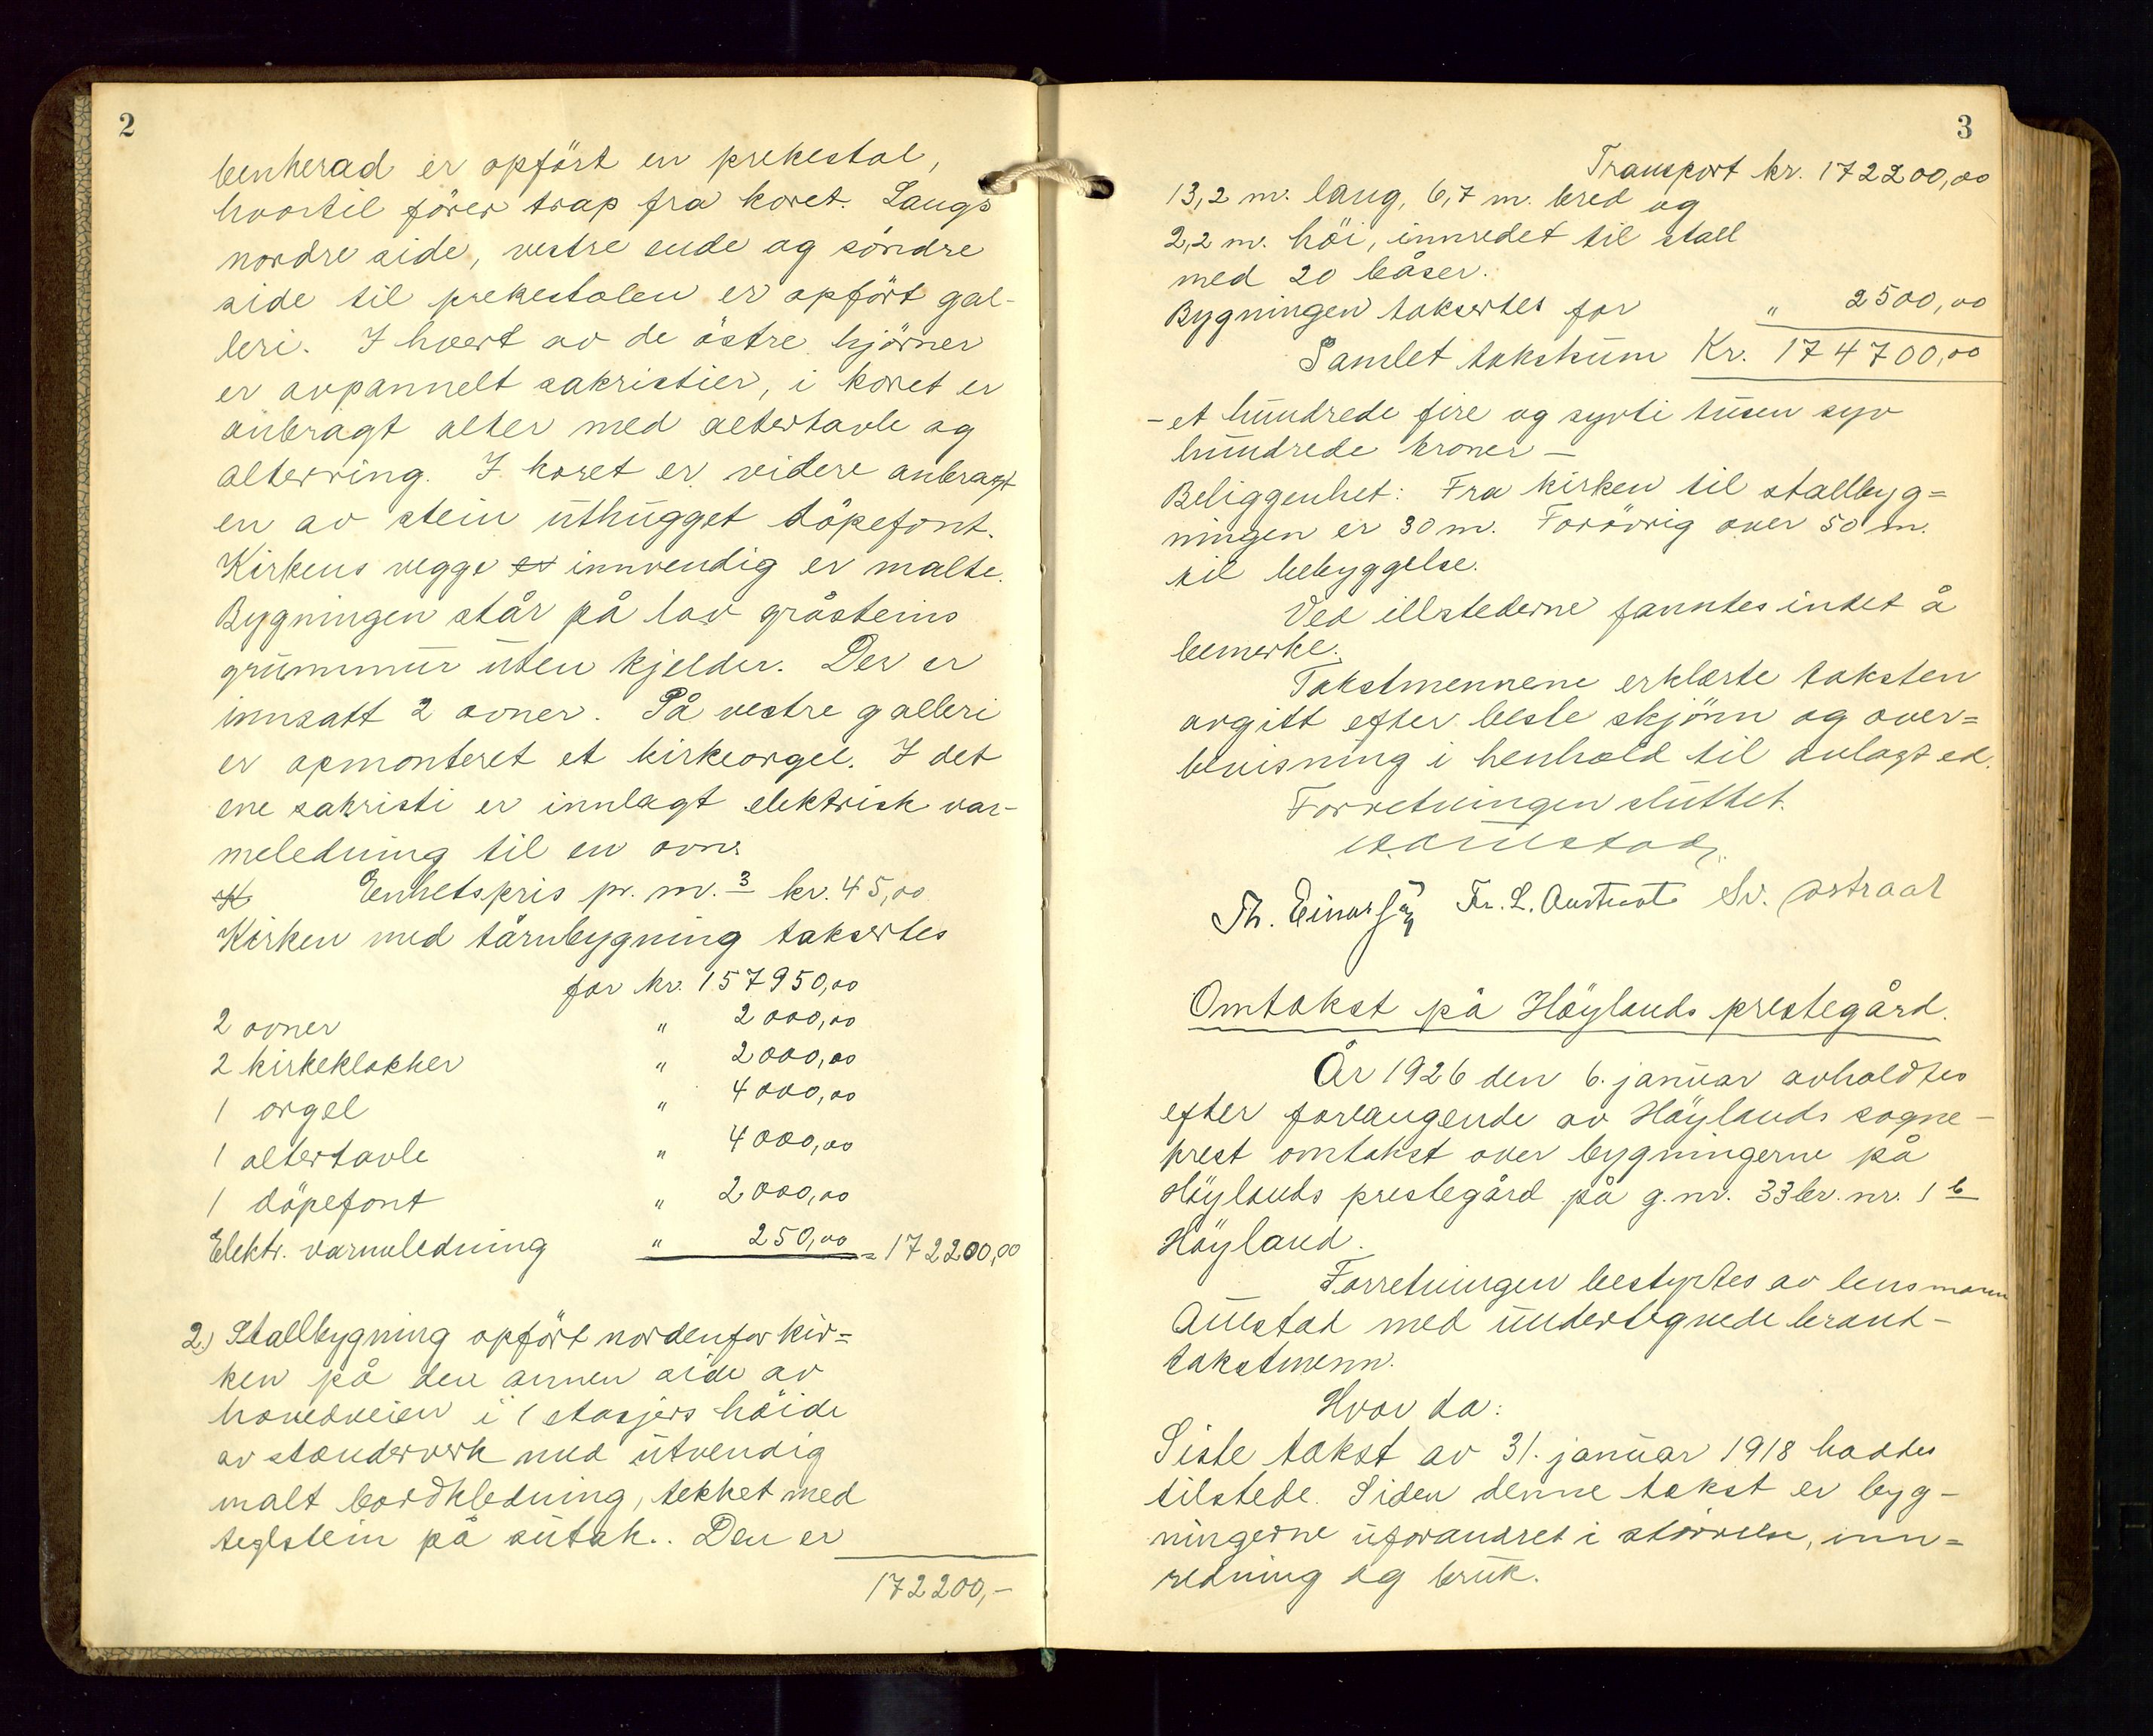 2
benherad er opført en prekestol,
hvortil fører trap fra koret. Langs
nordre side, vestre ende og söndre
side til prekestolen er opfört gal-
leri. I hvert av de östre hjörner
er avpannelt sakristier, i koret er
anbragt alter med altertavle og
alterring. I koret er videre anbragt
en av stein uthugget döpefont.
Kirkens vegge er innvendig er malte.
Bygningen står på lav gråsteins
grunnmur uten kjelder. Der er
innsatt 2 ovner. På vestre galleri
er opmonteret et kirkeorgel. I det
ene sakristi er innlagt elektrisk var-
meledning til en ovn.
K Enhetspris pr. m.3 kr. 45,00
Kirken med tårnbygning takseres
for kr. 157950,00
2 ovner " 2000,00
2 kirkeklokker " 2000,00
1 orgel " 4000,00
1 altertavle " 4000,00
1 döpefont " 2000,00
Elektr. varmeledning " 250,00 = 172200,00
2) Stallbygning opfört nordenfor kir=
ken på den annen side av
hovedveien i 1 etasjers höide
av stenderverk med utvendig
malt bordkledning, tekket med
teglstein på sutak. Den er
172200,-
3
Transport kr. 172200,00
13,2 m. lang, 6,7 m. bred og
2,2 m. höi, innredet til stall
med 20 båser.
Bygningen taksertes for " 2500,00
Samlet takstsum Kr. 174700,00
- et hundrede fire og sytti tusen syv
hundrede kroner -
Beliggenhet: Fra kirken til stallbyg=
ningen er 30 m. Forövrig over 50 m.
til bebyggelse.
Ved illstederne fanntes intet å
bemerke.
Takstmennene erklærte taksten
avgitt efter beste skjönn og over=
bevisning i henhold til avlagt ed.
Forretningen sluttet.
Th. Einarsen Sv. Østraat
Omtakst på Höylands prestegård.
År 1926 den 6. januar avholdtes
efter forlangende av Höylands sogne-
prest omtakst over bygningerne på
Höylands prestegård på g.nr. 33 br. nr. 1 b
Höyland.
Forretningen bestyrtes av lensmann
Austad med undertegnede brand-
takstmenn.
Hvor da:
Siste takst av 31. januar 1918 haddes
tilstede. Siden denne takst er byg-
ningerne uforandret i störrelse, inn=
redning og bruk.